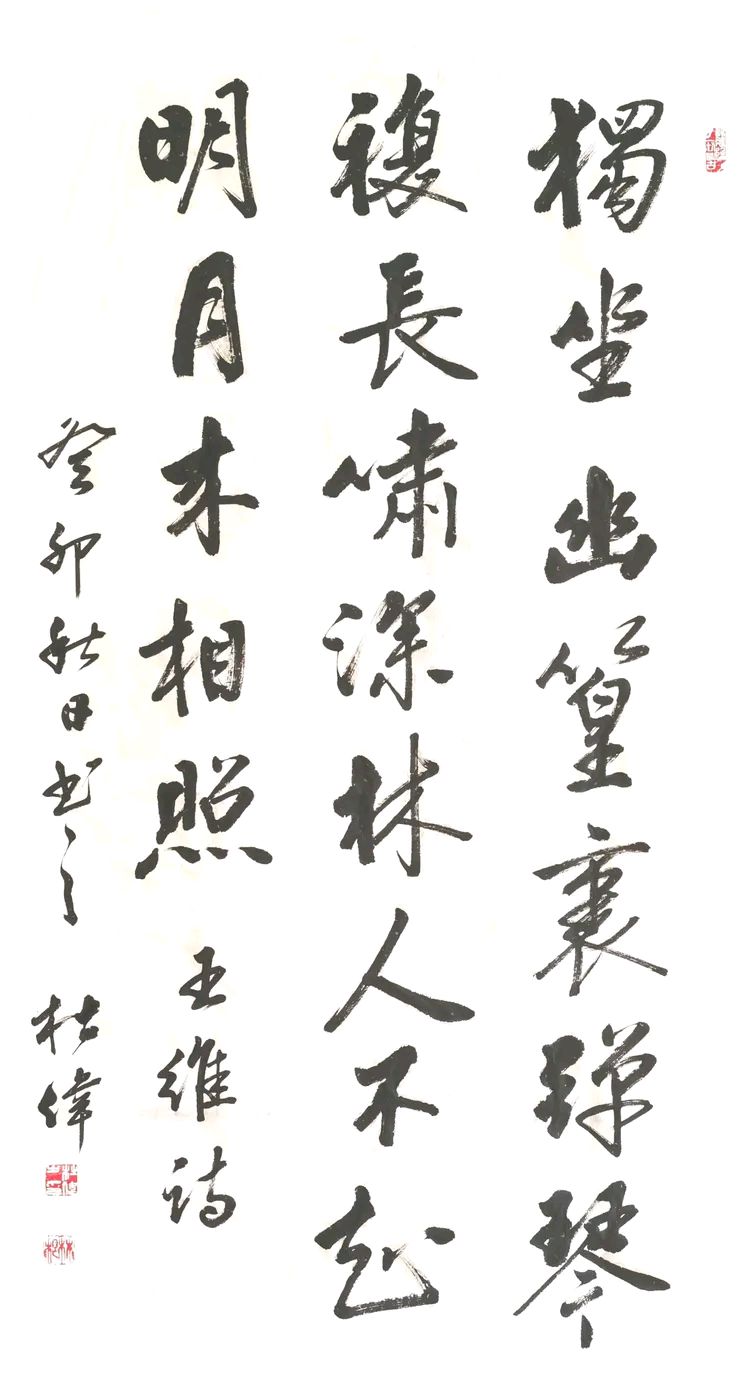 獨坐幽篁裏彈琴
複長嘯深林人不起
明月来相照 王維詩
癸卯秋日书之 杜偉